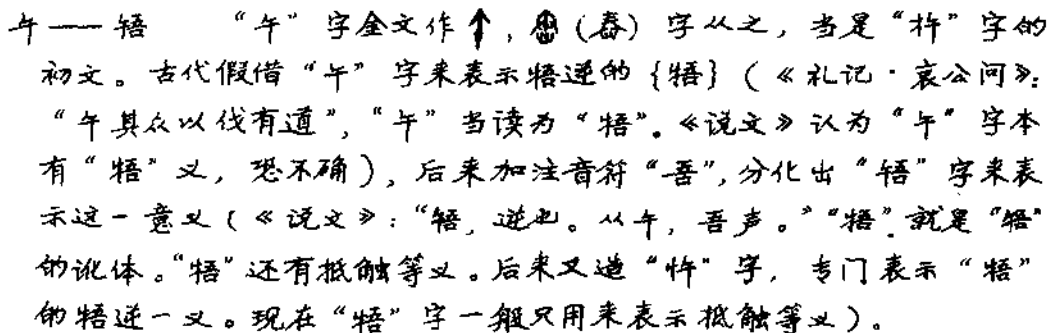 午——啎 “午”字金文作↑，（舂）字从之，当是“杵”字的
初文。古代假借“午”字来表示牾逆的{牾}（《礼记·哀公问》：
“午其众以伐有道”，“午”当读为“牾”。《说文》认为“午”字本
有“牾”义，恐不确），后来加注音符“吾”，分化出“啎”字来表
示这一意义（《说文》：“啎，逆也。从午，吾声。”“牾”就是“啎”
的讹体。“牾”还有抵触等义。后来又造“忤”字，专门表示“牾”
的牾逆一义。现在“牾”字一般只用来表示抵触等义）。